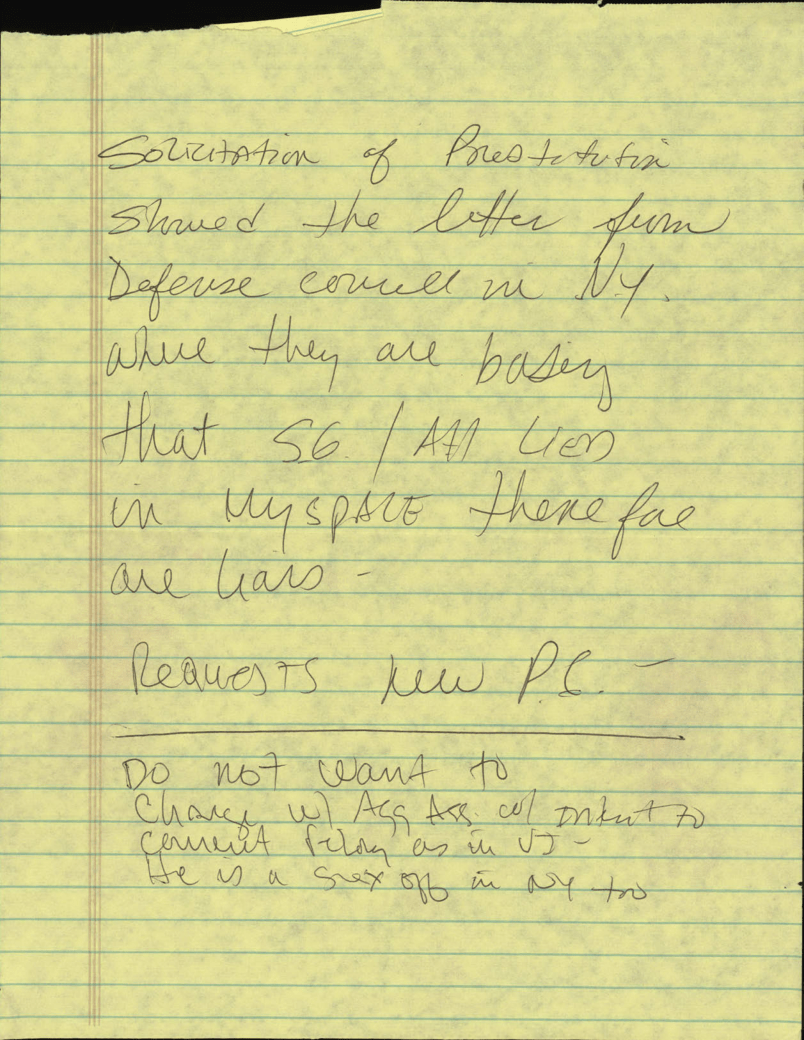 Solicitation of Prostitution
Showed the letter from
Defense councel in NY.
where they are basing
that SG. / AH Lies
in MySPACE therefore
are liars -
Requests new P.C. -
Do not want to
Charge w/ Agg Ass. w/ intent to
commit felony as in VI -
He is a sex off in NY too